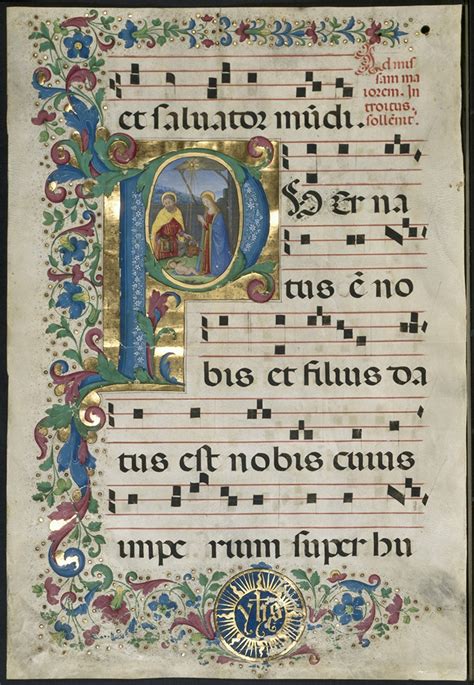 et saluator mūdi.
Ad mis
sam ma
iorem. In
troitus.
sollenit'.
PUer na
tus ē no
bis et filius da
tus est nobis cuius
impe rium super hu
yhs